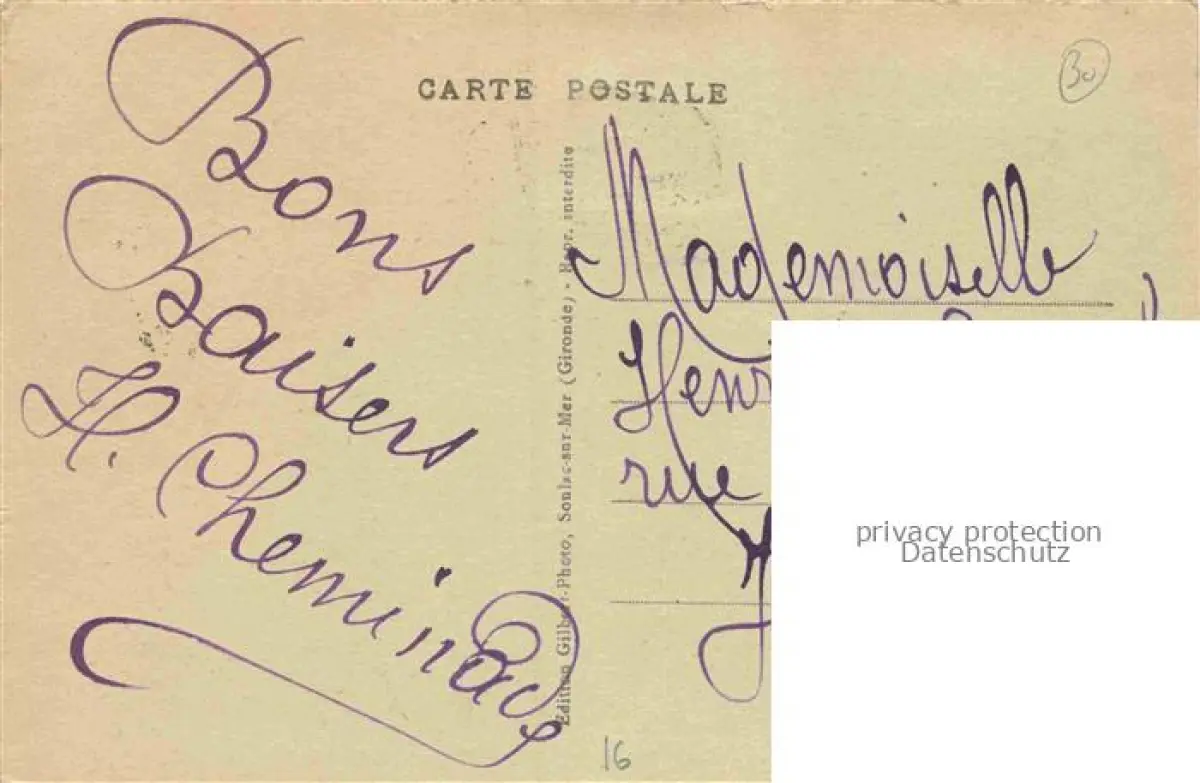 CARTE POSTALE
30
Bons
Baisers
H. Cheminade
Edition Gilbert-Photo, Soulac-sur-Mer (Gironde) - Repr. interdite
Mademoiselle
Henr
rue
privacy protection
Datenschutz
16